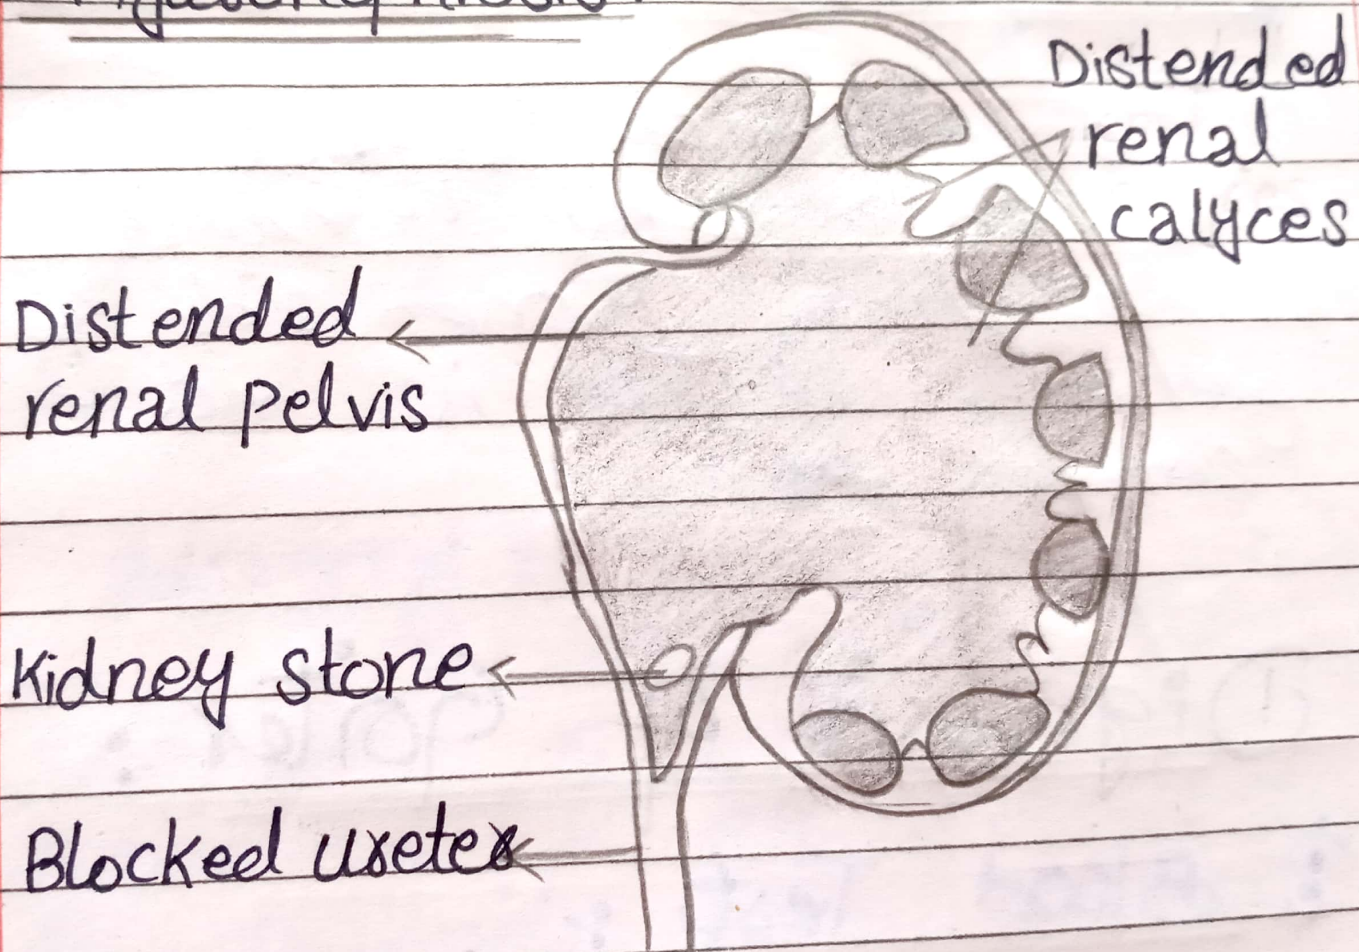 Distended
renal
calyces
Distended
renal pelvis
Kidney stone
Blocked ureter